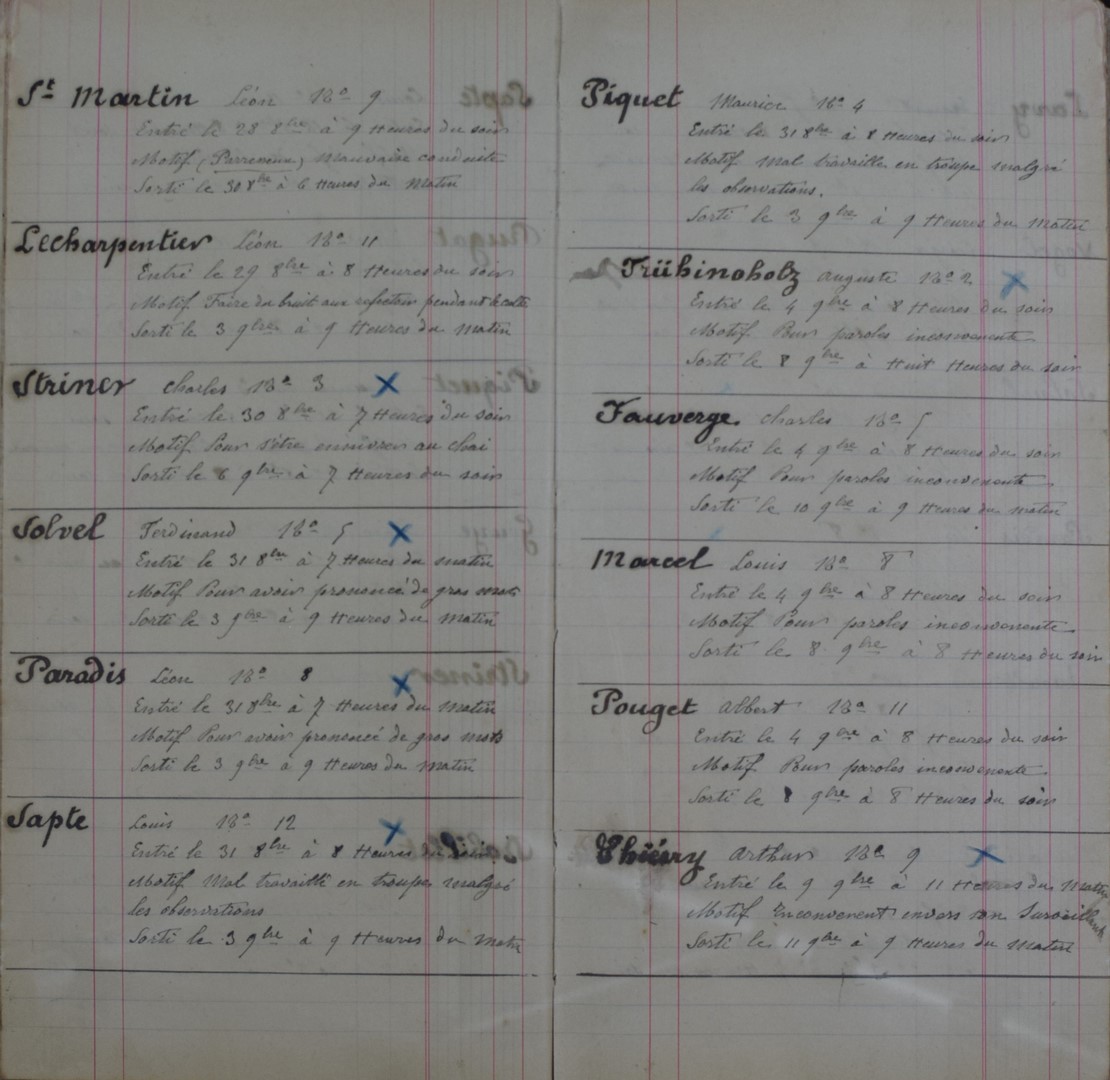 St Martin Léon 13a 9
Entré le 28 8bre à 9 Heures du soir
Motif (Perreveux) Mauvaise conduite
Sorti le 30 8bre à 6 Heures du Matin
Lecharpentier Léon 13a 11
Entré le 29 8bre à 8 Heures du soir
Motif Faire du bruit aux refectoir pendant
Sorti le 3 9bre à 9 Heures du Matin
Striner Charles 13a 3
Entré le 30 8bre à 7 Heures du soir
Motif Pour s'être ennivrer au chai
Sorti le 6 9bre à 7 Heures du soir
Solvel Ferdinand 13a 5
Entré le 31 8bre à 7 Heures du matin
Motif Pour avoir prononcé de gros mots
Sorti le 3 9bre à 9 Heures du Matin
Paradis Léon 13a 8
Entré le 31 8bre à 7 Heures du Matin
Motif Pour avoir prononcé de gros mots
Sorti le 3 9bre à 9 Heures du Matin
Sapte Louis 13a 12
Entré le 31 8bre à 8 Heures du soir
Motif Mal travaillé en troupe malgré
les observations
Sorti le 3 9bre à 9 Heures du Matin
Piquet Maurice 16a 4
Entré le 31 8bre à 8 Heures du soir
Motif Mal travaille en troupe malgré
les observations.
Sorti le 3 9bre à 9 Heures du Matin
Trühinoholz Auguste 13a 2
Entré le 4 9bre à 8 Heures du soir
Motif Pour paroles inconvenente
Sorti le 8 9bre à Huit Heures du soir
Fauverge Charles 13a 5
Entré le 4 9bre à 8 Heures du soir
Motif Pour paroles inconvenente
Sorti le 10 9bre à 9 Heures du matin
Marcel Louis 13a 8
Entré le 4 9bre à 8 Heures du soir
Motif Pour paroles inconvenente
Sorti le 8 9bre à 8 Heures du soir
Pouget Albert 13a 11
Entré le 4 9bre à 8 Heures du soir
Motif Pour paroles inconvenente
Sorti le 8 9bre à 8 Heures du soir
Thiéry Arthur 13a 9
Entré le 9 9bre à 11 Heures du Matin
Motif Inconvenent envers son Surveillant
Sorti le 11 9bre à 9 Heures du Matin